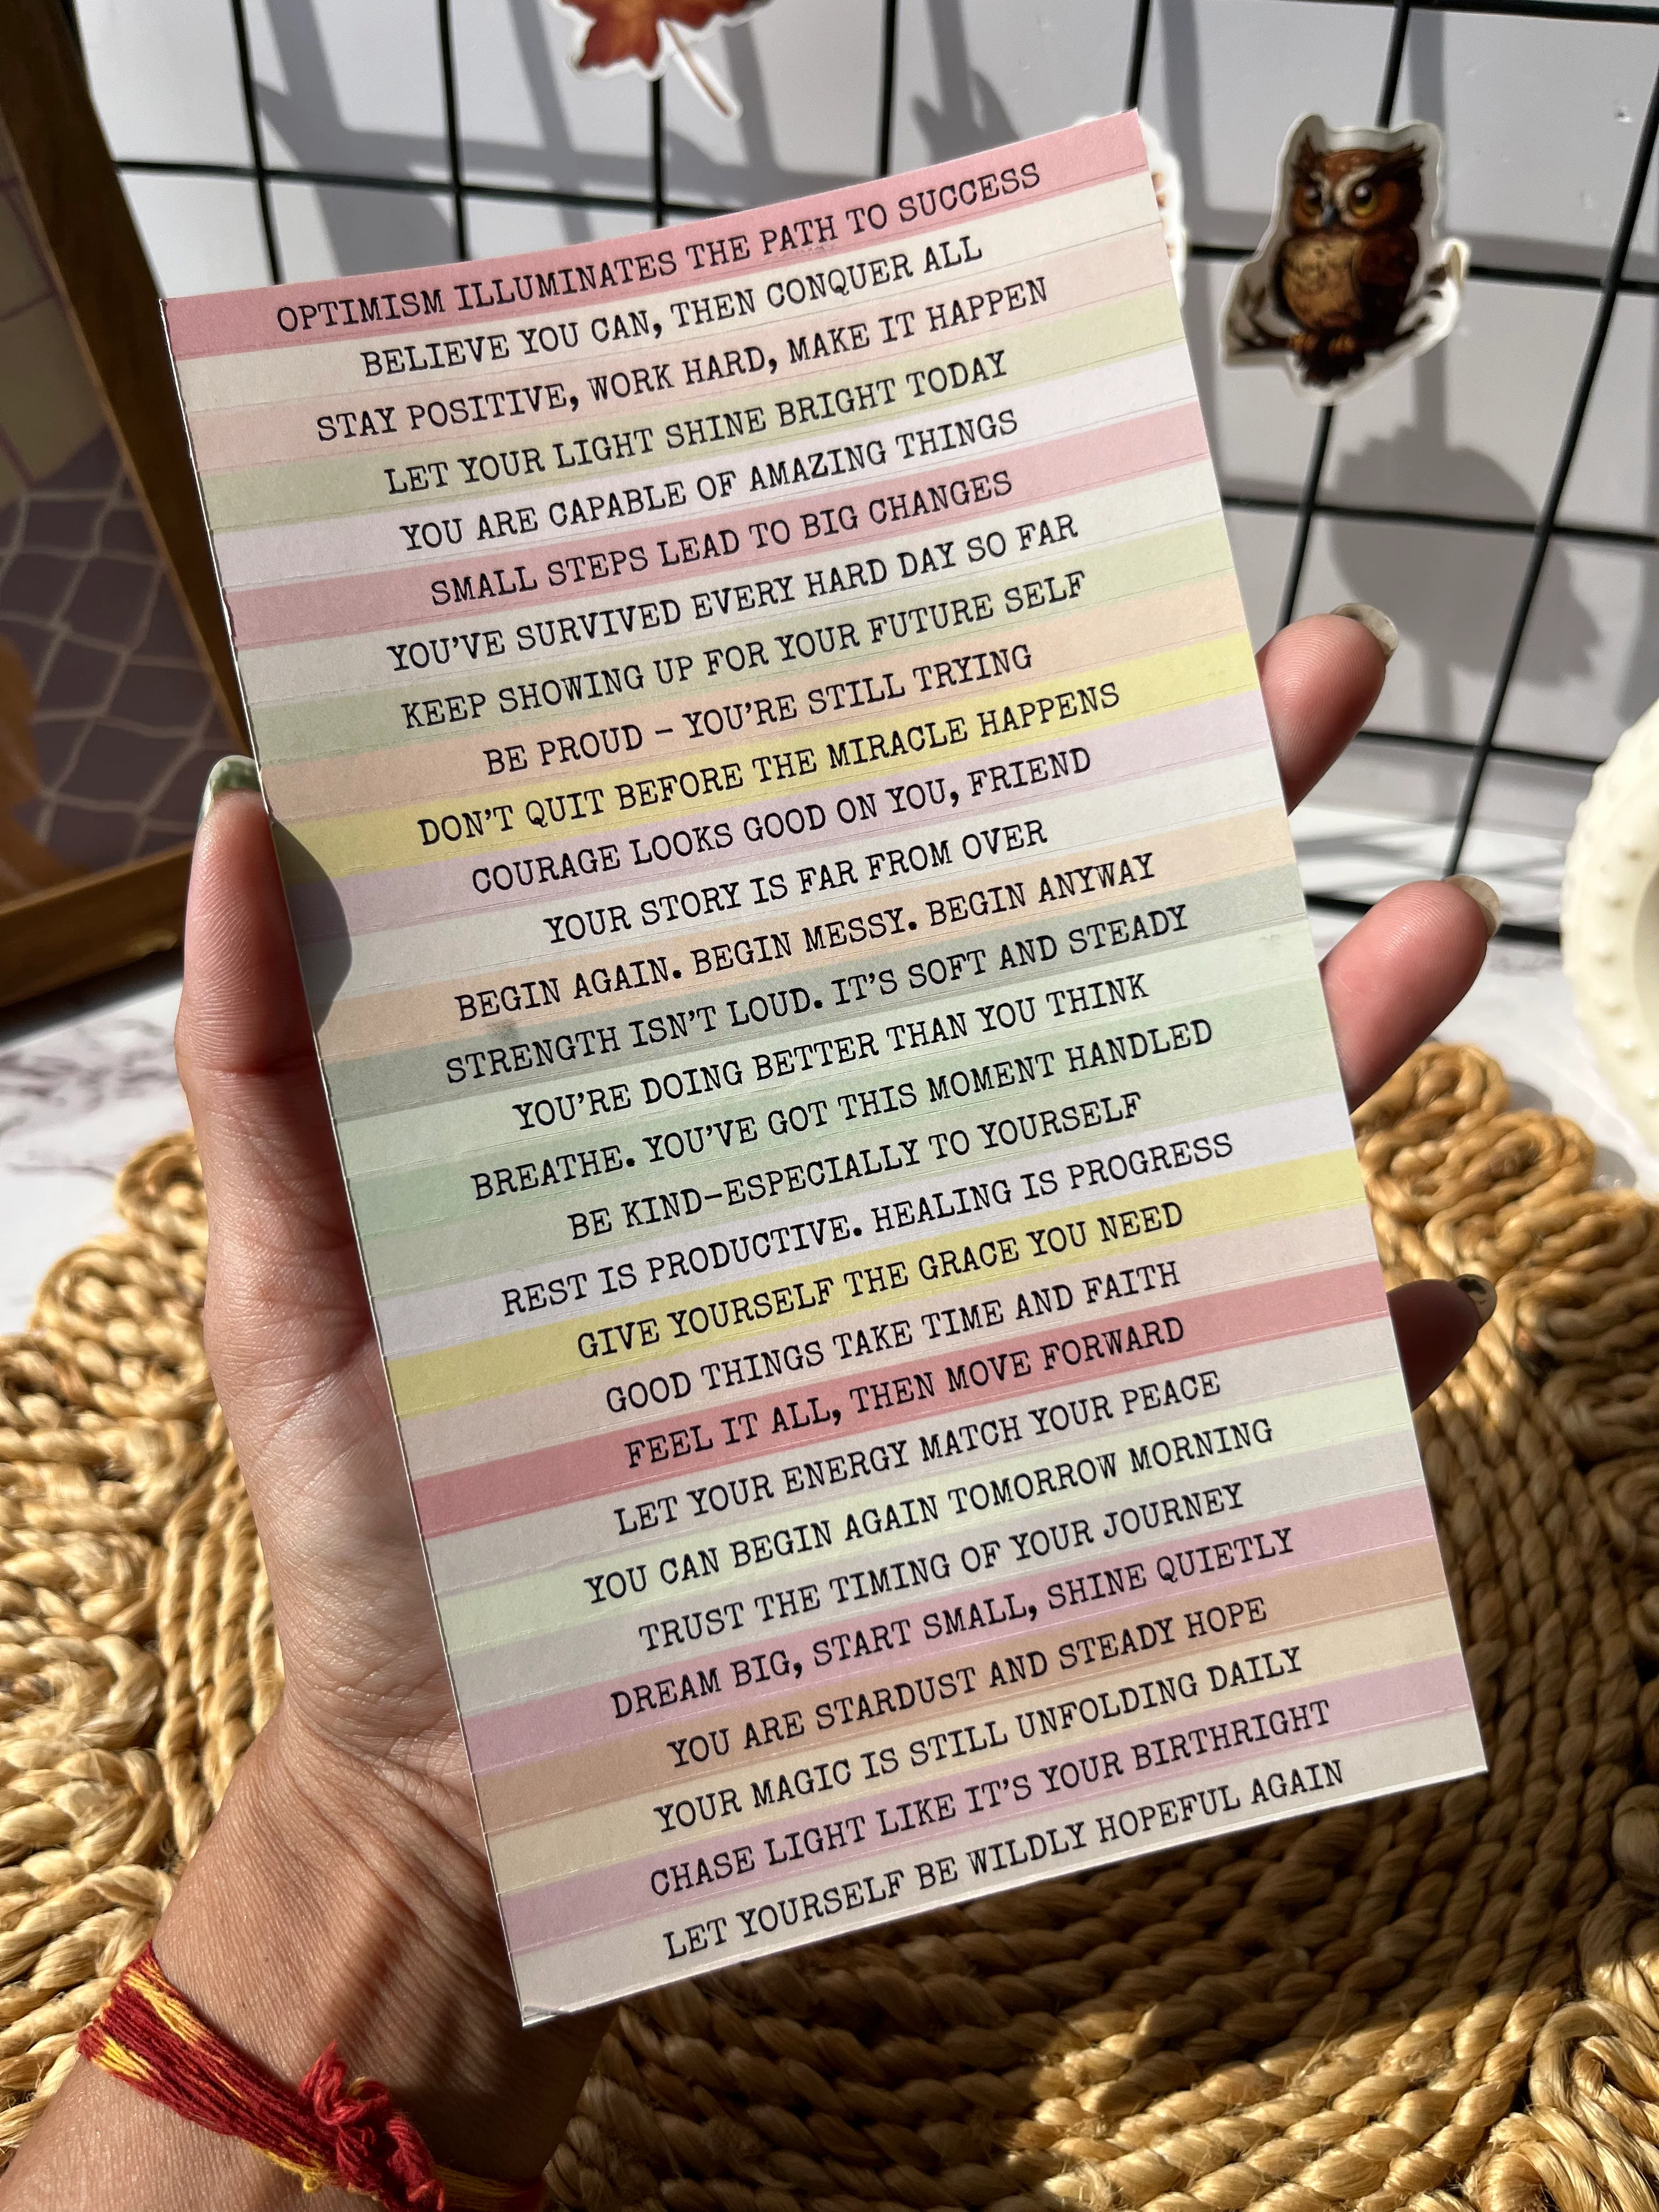 OPTIMISM ILLUMINATES THE PATH TO SUCCESS
BELIEVE YOU CAN, THEN CONQUER ALL
STAY POSITIVE, WORK HARD, MAKE IT HAPPEN
LET YOUR LIGHT SHINE BRIGHT TODAY
YOU ARE CAPABLE OF AMAZING THINGS
SMALL STEPS LEAD TO BIG CHANGES
YOU'VE SURVIVED EVERY HARD DAY SO FAR
KEEP SHOWING UP FOR YOUR FUTURE SELF
BE PROUD - YOU'RE STILL TRYING
DON'T QUIT BEFORE THE MIRACLE HAPPENS
COURAGE LOOKS GOOD ON YOU, FRIEND
YOUR STORY IS FAR FROM OVER
BEGIN AGAIN. BEGIN MESSY. BEGIN ANYWAY
STRENGTH ISN'T LOUD. IT'S SOFT AND STEADY
YOU'RE DOING BETTER THAN YOU THINK
BREATHE. YOU'VE GOT THIS MOMENT HANDLED
BE KIND-ESPECIALLY TO YOURSELF
REST IS PRODUCTIVE. HEALING IS PROGRESS
GIVE YOURSELF THE GRACE YOU NEED
GOOD THINGS TAKE TIME AND FAITH
FEEL IT ALL, THEN MOVE FORWARD
LET YOUR ENERGY MATCH YOUR PEACE
YOU CAN BEGIN AGAIN TOMORROW MORNING
TRUST THE TIMING OF YOUR JOURNEY
DREAM BIG, START SMALL, SHINE QUIETLY
YOU ARE STARDUST AND STEADY HOPE
YOUR MAGIC IS STILL UNFOLDING DAILY
CHASE LIGHT LIKE IT'S YOUR BIRTHRIGHT
LET YOURSELF BE WILDLY HOPEFUL AGAIN